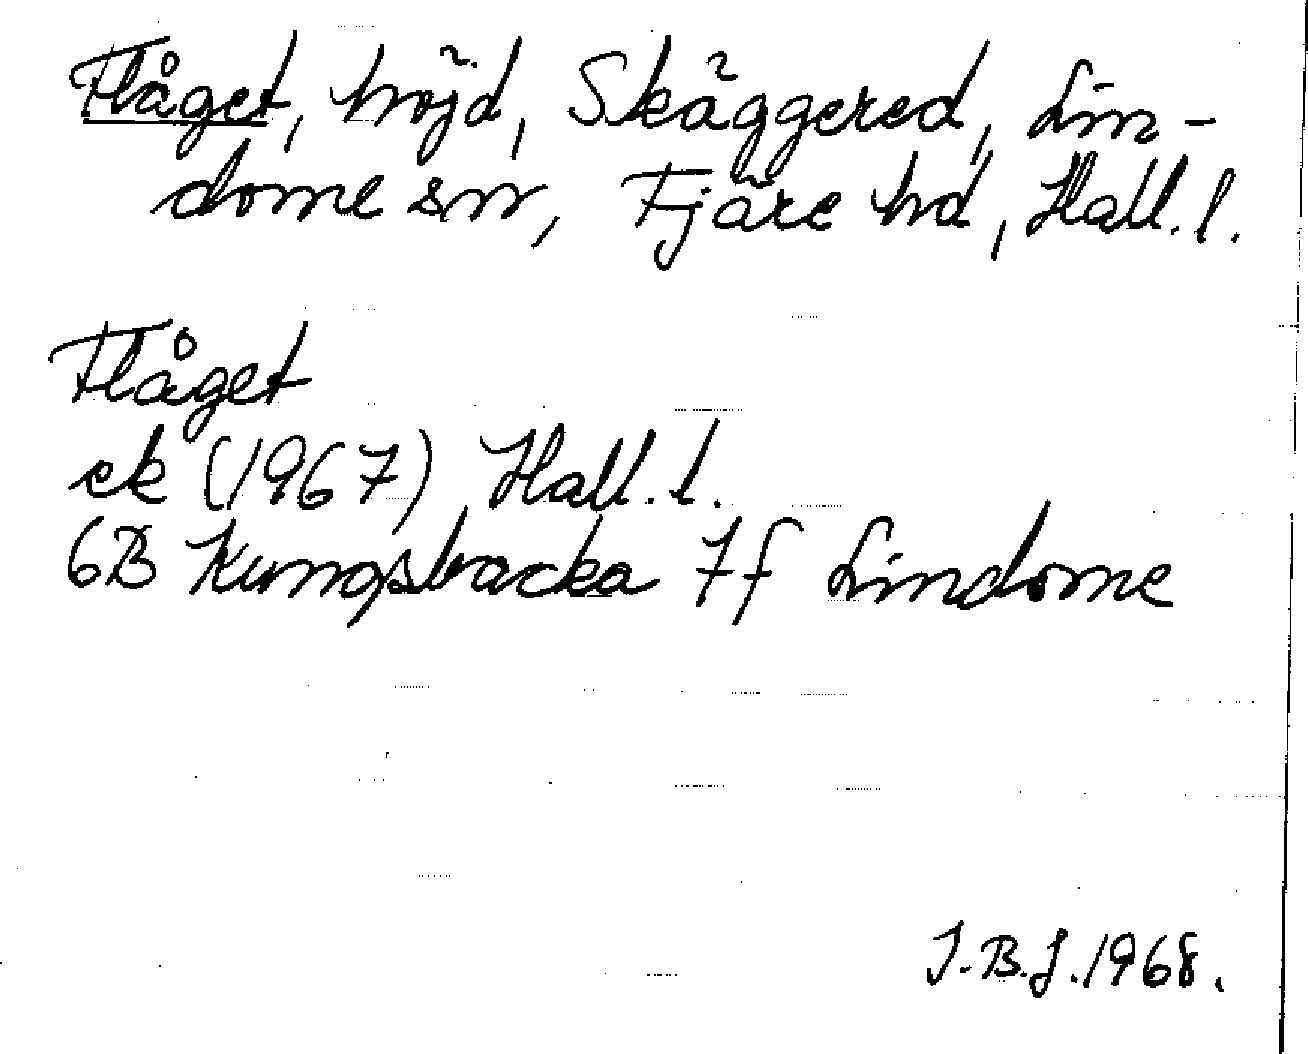 Flåget, höjd, Skäggered, Lin-
dome sn, Fjäre hd, Hall. l.
Flåget
ek (1967) Hall. l.
6B Kungsbacka 7f Lindome
J.B.J. 1968.